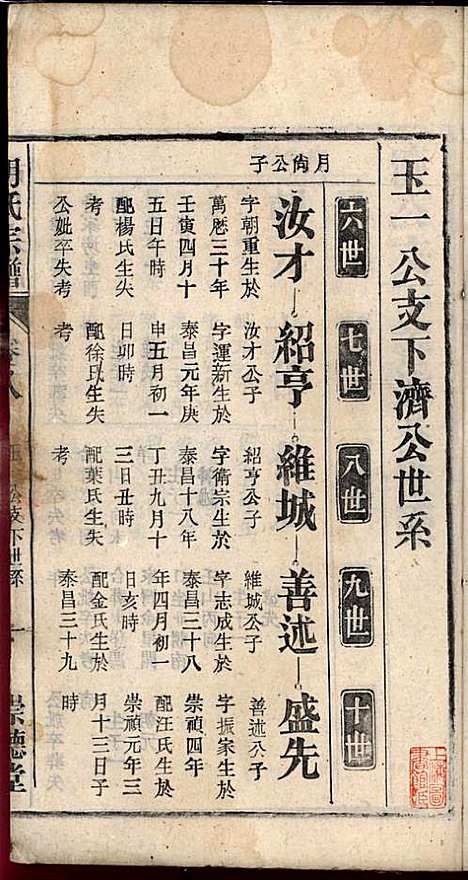 玉一公支下濟公世系
六世
七世
八世
九世
十世
月尙公子
汝才
紹亨
維城
善述
盛先
字朝重生於
萬厯三十年
壬寅四月十
五日午時
配楊氏生失
考
公妣卒失考
汝才公子
字運新生於
泰昌元年庚
申五月初一
日卯時
配徐氏生失
考
紹亨公子
字衛宗生於
泰昌十八年
丁丑九月十
三日丑時
配葉氏生失
考
維城公子
字志成生於
泰昌三十八
年四月初一
日亥時
配金氏生於
泰昌三十九
善述公子
字振家生於
崇禎四年
配汪氏生於
崇禎元年三
月十三日子
時
氏宗譜
卷之八
公支下世系
一
崇德堂